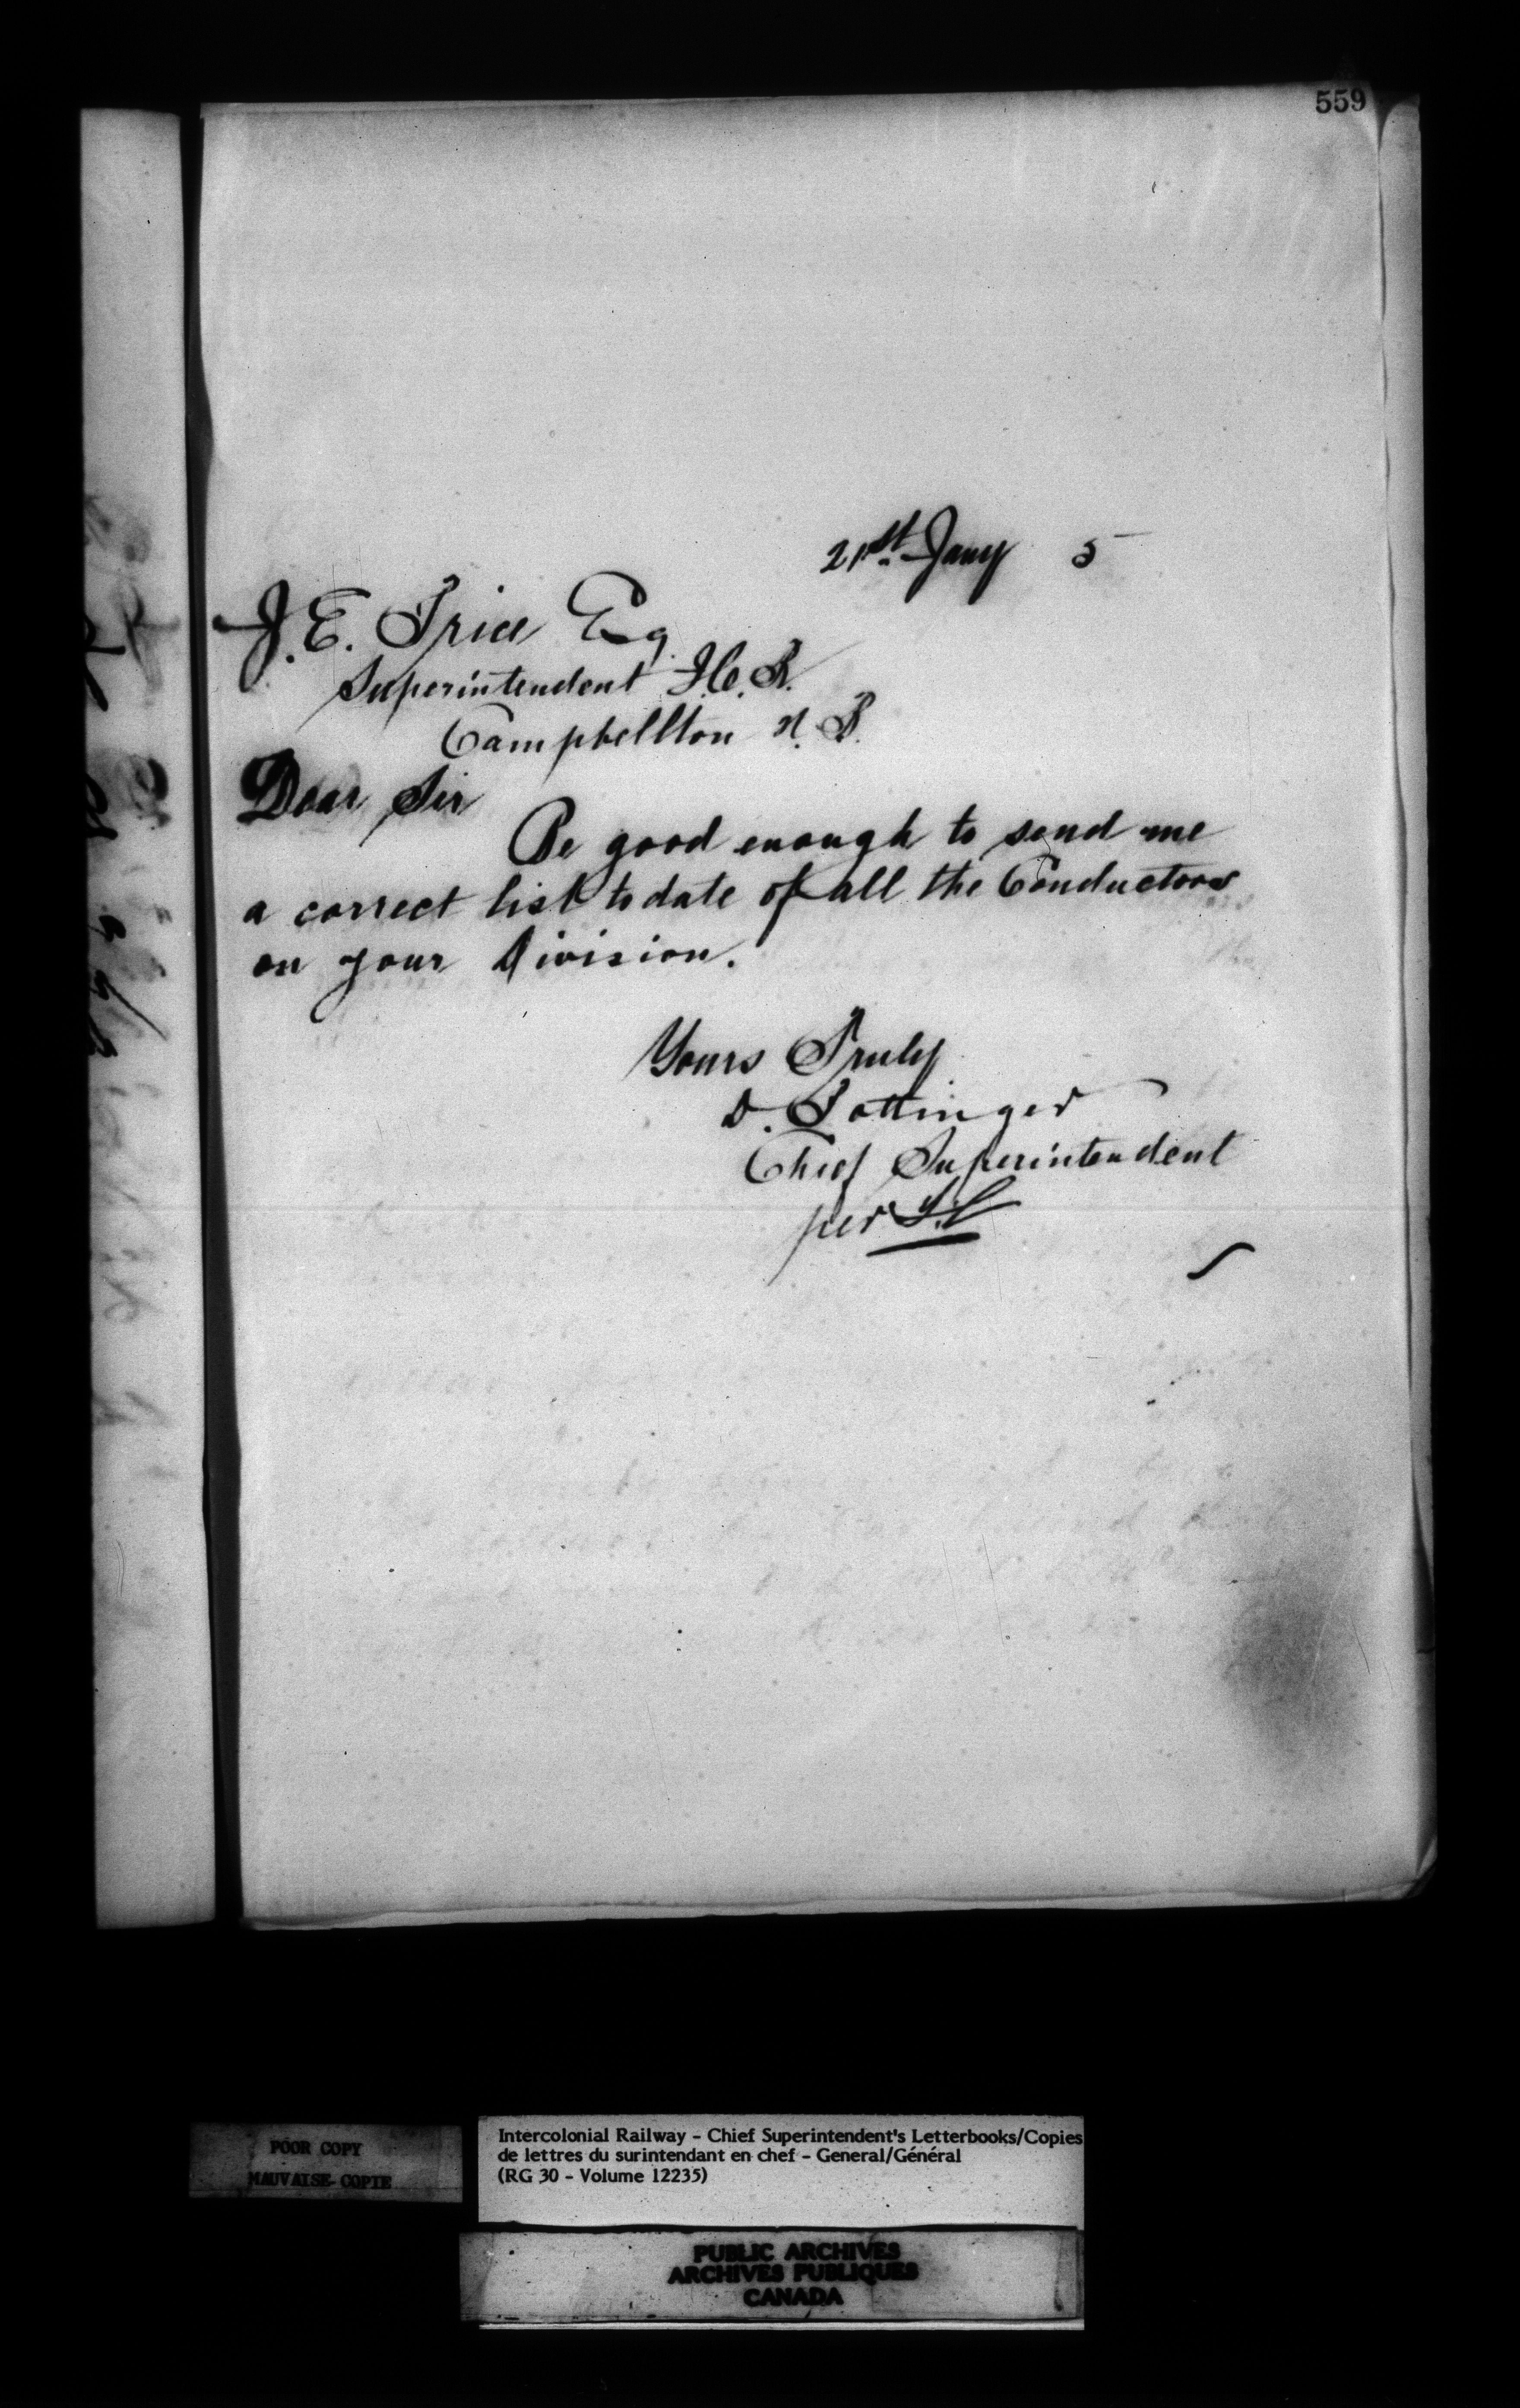 559
21st. Jany 5
J. E. Price Esq.
Superintendent I.C.R.
Campbellton N.B.
Dear Sir
Be good enough to send me
a correct list to date of all the Conductors
on your Division.
Yours Truly
D. Pottinger
Chief Superintendent
per
POOR COPY
MAUVAISE COPIE
Intercolonial Railway - Chief Superintendent's Letterbooks/Copies
de lettres du surintendant en chef - General/Général
(RG 30 - Volume 12235)
PUBLIC ARCHIVES
ARCHIVES PUBLIQUES
CANADA